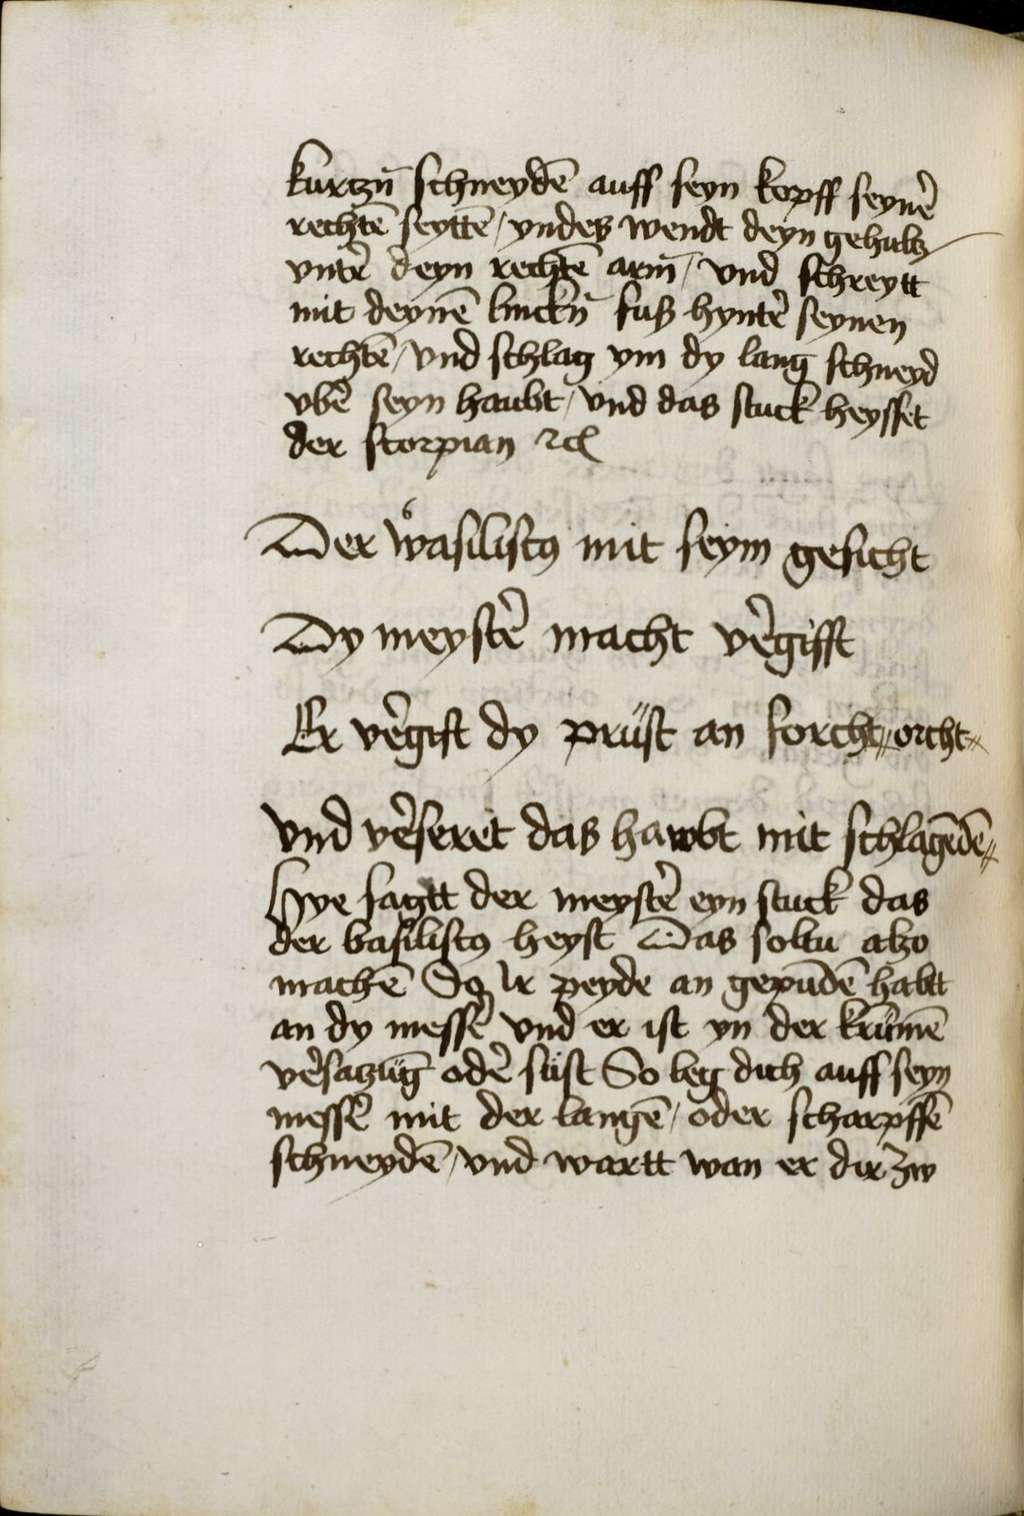 kurtzñ schneydē auff seyn kopff seyn̉e
rechtē seyttē / yndes wendt deyn gehultz
vnter̉ deyn rechtē arm̄ / vnd schreytt
mit deynē linckñ fuß hynter̉ seynen
rechtē / vnd schlag ym dy lang schneyd
vbē seyn haubt / vnd das stuck heysset
der scorpian ⁊cͣ
Der wasiliscꝰ mit seym gesicht
Dy meyster̉ macht ver̉gifft
Er ver̉gift dy prüst an forcht // orcht //
vnd ver̉seret das hawbt mit schlagēdē //
Hye sagtt der meyster̉ eyn stuck das
der basiliscꝰ heyst Das soltu alzo
machē So Ir peyde an gepūdē habtt
an dy messer̉ vnd er ist yn der krūmē
ver̉satzūg oder̉ süst So leg dich auff seyn
messer̉ mit der langē / oder scharpffē
schneydē / vnd wartt wan er dir zw